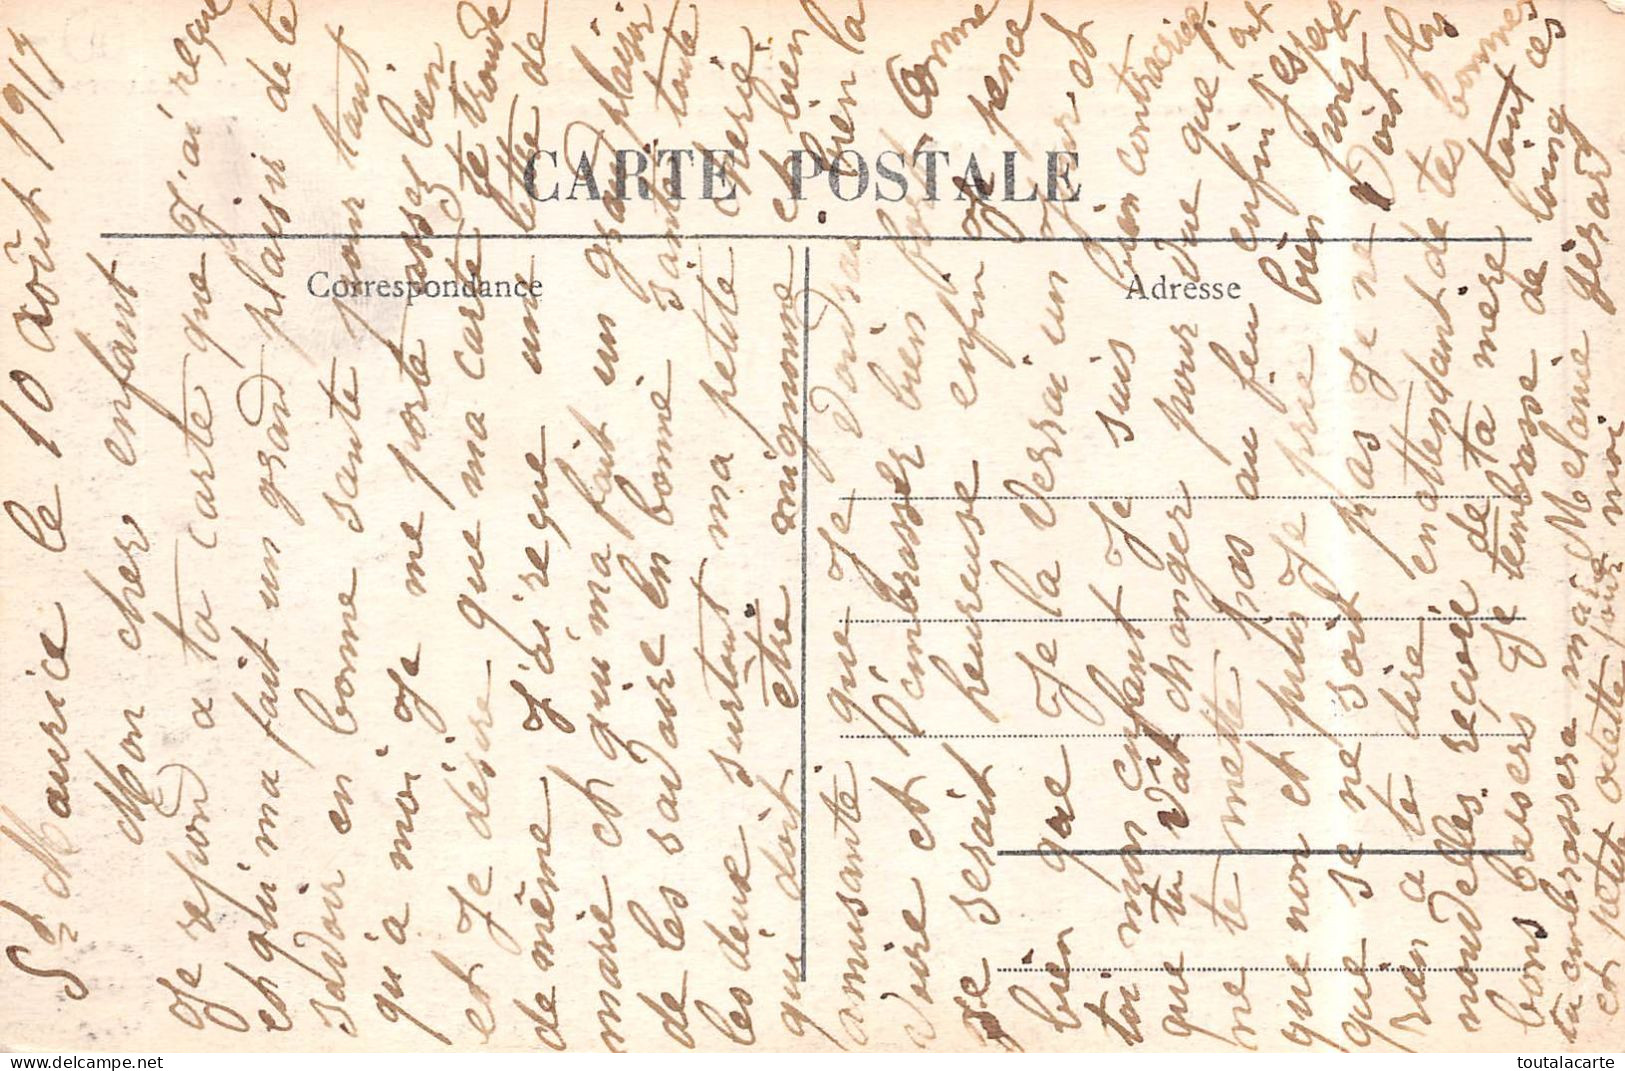 CARTE POSTALE
Correspondance
Adresse
St Maurice le 10 août 1917
Mon cher enfant
Je repond a ta carte que J'ai reçue
et qui ma fait un grand plaisir de te
savoir en bonne sante pour tant
qu'a moi Je me porte assez bien
et Je désire que ma carte te trouve
de même J'ai reçue une lettre de
marie et qui ma fait un grand plaisir
de les savoire en bonne sante toute
les deux surtout ma petite cherie
qui doit être mignonne et bien
amusante que Je voudrais bien la
voire et l'embrasser bien fort Comme
Je serait heureuse enfin Je pence
bien que Je la verrai un Jour et
toi mon enfant Je suis bien contrariée
que tu vat changer pour vue que l'ont
ne te mette pas au feu enfin J'espere
que non et plus Je prie bien pour
que se ne soit pas Je ne voit plus
rien a te dire en attendant de tes bonnes
nouvelles reçoie de ta mere tout ces
bons baisers Je tembrasse de loing
tu embrassera marie Melanie Gerard
et petit odette pour moi
toutalacarte